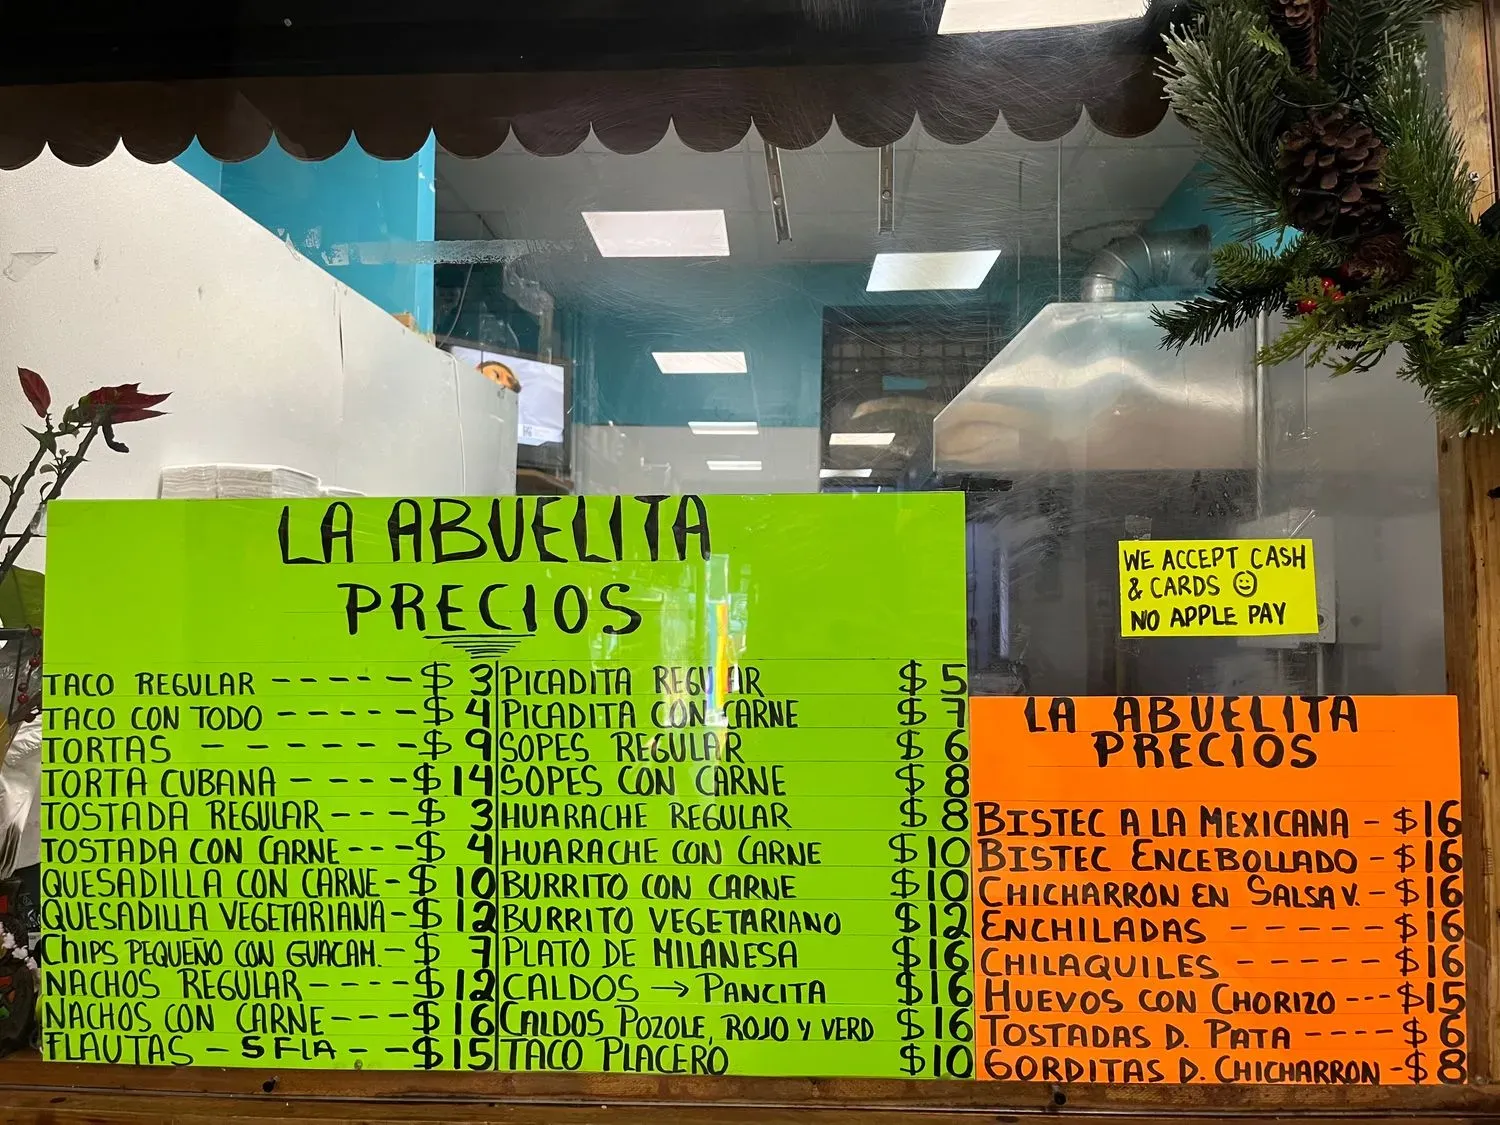 LA ABUELITA
PRECIOS
TACO REGULAR ----- $ 3
TACO CON TODO ----- $ 4
TORTAS ------ $ 9
TORTA CUBANA ---- $ 14
TOSTADA REGULAR --- $ 3
TOSTADA CON CARNE --- $ 4
QUESADILLA CON CARNE - $ 10
QUESADILLA VEGETARIANA - $ 12
CHIPS PEQUEÑO CON GUACAM. - $ 7
NACHOS REGULAR ---- $ 12
NACHOS CON CARNE --- $ 16
FLAUTAS - 5 FLA -- $ 15
PICADITA REGULAR $ 5
PICADITA CON CARNE $ 7
SOPES REGULAR $ 6
SOPES CON CARNE $ 8
HUARACHE REGULAR $ 8
HUARACHE CON CARNE $ 10
BURRITO CON CARNE $ 10
BURRITO VEGETARIANO $ 12
PLATO DE MILANESA $ 16
CALDOS → PANCITA $ 16
CALDOS POZOLE, ROJO Y VERD $ 16
TACO PLACERO $ 10
WE ACCEPT CASH
& CARDS ☺
NO APPLE PAY
LA ABUELITA
PRECIOS
BISTEC A LA MEXICANA - $ 16
BISTEC ENCEBOLLADO - $ 16
CHICHARRON EN SALSA V. - $ 16
ENCHILADAS ----- $ 16
CHILAQUILES ----- $ 16
HUEVOS CON CHORIZO --- $ 15
TOSTADAS D. PATA ---- $ 6
GORDITAS D. CHICHARRON - $ 8